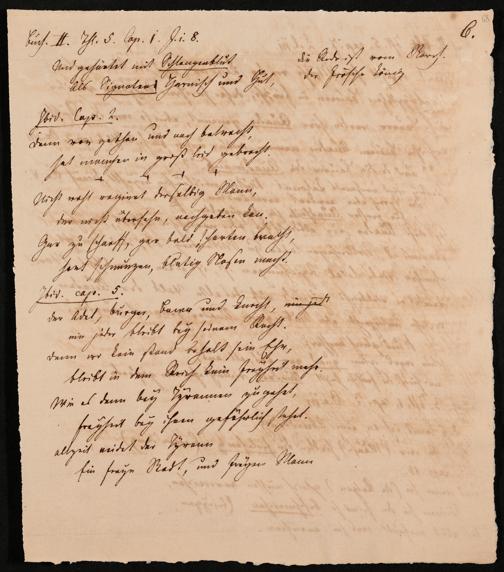 6.
Buch. II. Thl. 5. Cap. 1. J. i. 8.
Und gehärtet mit Schlangenblut die Rede ist vom Storch.
Als Signaten Harnisch und Hut, der Frösche König
Ibid. Cap. 2.
Denn vor gethan und nach betracht,
hat manchen in groß leid gebracht.
Nicht recht regiret derselbig Mann,
der nicht übersehn, nachgeben kan.
Gar zu scharff, gar bald scharten macht,
hart schneutzen, blutig Nasen macht.
Ibid. cap. 5.
der Adel, bürger, bauer und Knecht,
ein jeder bleibt bey seinem Recht.
Denn wo kein stand behalt sein Ehr,
bleibt in dem Reich kein freyheit mehr.
Wie es denn bey Tyrannen zu gehet,
freyheit bey ihnen gefährlich stehet.
allzeit neidet der Tyrann
Ein freye Stadt, und freyen Mann